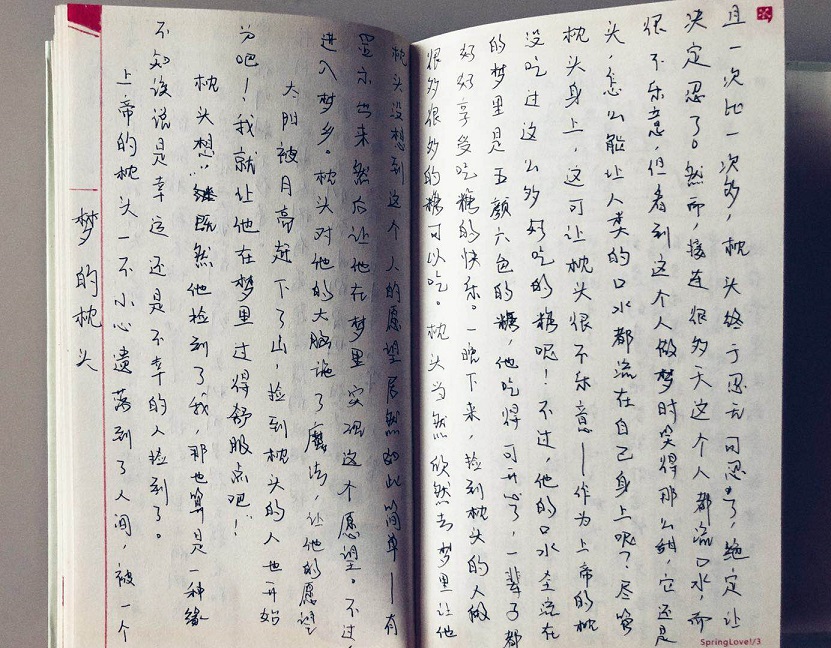 梦的枕头
上帝的枕头一不小心遗落到了人间，被一个
不知该说是幸运还是不幸的人捡到了。
枕头想：“既然他捡到了我，那也算是一种缘
分吧！我就让他在梦里过得舒服点吧！”
太阳被月亮赶下了山，捡到枕头的人也开始
进入梦乡。枕头对他的大脑施了魔法，让他的愿望
显示出来然后让他在梦里实现这个愿望。不过，
枕头没想到这个人的愿望居然如此简单——有
很多很多的糖可以吃。枕头当然欣然去梦里让他
好好享受吃糖的快乐。一晚下来，捡到枕头的人做
的梦里是五颜六色的糖，他吃得可开心了，一辈子都
没吃过这么多好吃的糖呢！不过，他的口水全流在
枕头身上，这可让枕头很不乐意——作为上帝的枕
头，怎么能让人类的口水都流在自己身上呢？尽管
很不乐意，但看到这个人做梦时笑得那么甜，它还是
决定忍了。然而，接连很多天这个人都流口水，而
且一次比一次多，枕头终于忍无可忍了，绝定让
SpringLove!/3